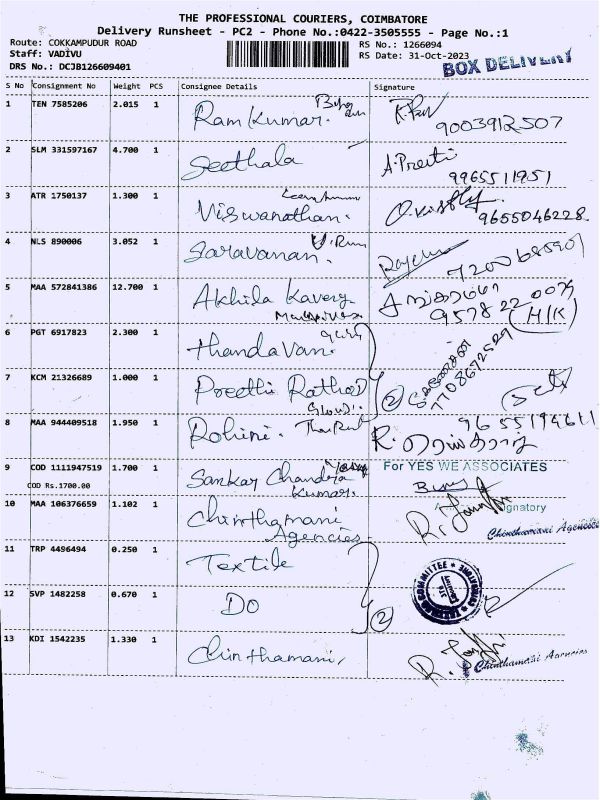 THE PROFESSIONAL COURIERS, COIMBATORE
Delivery Runsheet - PC2 - Phone No.:0422-3505555 - Page No.:1
Route: COKKAMPUDUR ROAD RS No.: 1266094
Staff: VADIVU RS Date: 31-Oct-2023
DRS No.: DCJB126609401 BOX DELIVERY
S No Consignment No Weight PCS Consignee Details Signature
1 TEN 7585206 2.015 1 Ram Kumar. 9003912507
2 SLM 331597167 4.700 1 Seethala A.Preeti 9965511951
3 ATR 1750137 1.300 1 Viswanathan. 9655046228
4 NLS 890006 3.052 1 Saravanan.
5 MAA 572841386 12.700 1 Akhila Kavery 9578 22 0075
(H/K)
6 PGT 6917823 2.300 1 thandavan. 7708672529
7 KCM 21326689 1.000 1 Preethi Rathod (2)
8 MAA 944409518 1.950 1 Rohini. 9655194611
9 COD 1111947519 1.700 1 Sankar Chandra Kumar. For YES WE ASSOCIATES
COD Rs.1700.00
10 MAA 106376659 1.102 1 Chinthamani Agencies Signatory
Chinthamani Agencies
11 TRP 4496494 0.250 1 Textile
12 SVP 1482258 0.670 1 DO (2)
13 KDI 1542235 1.330 1 Chinthamani, Chinthamani Agencies